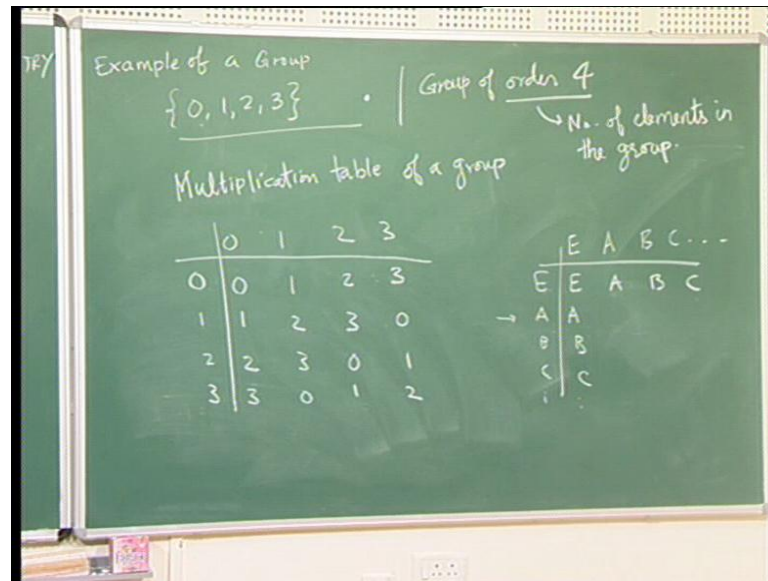 TRY
Example of a Group
{0, 1, 2, 3} .
Group of order 4
↳ No. of elements in
the group.
Multiplication table of a group
0 1 2 3
0 0 1 2 3
1 1 2 3 0
2 2 3 0 1
3 3 0 1 2
E A B C ...
E E A B C
→ A A
B B
C C
⋮ ⋮